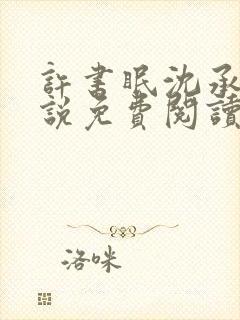 許書眠沈承
說免費閱讀
洛咪